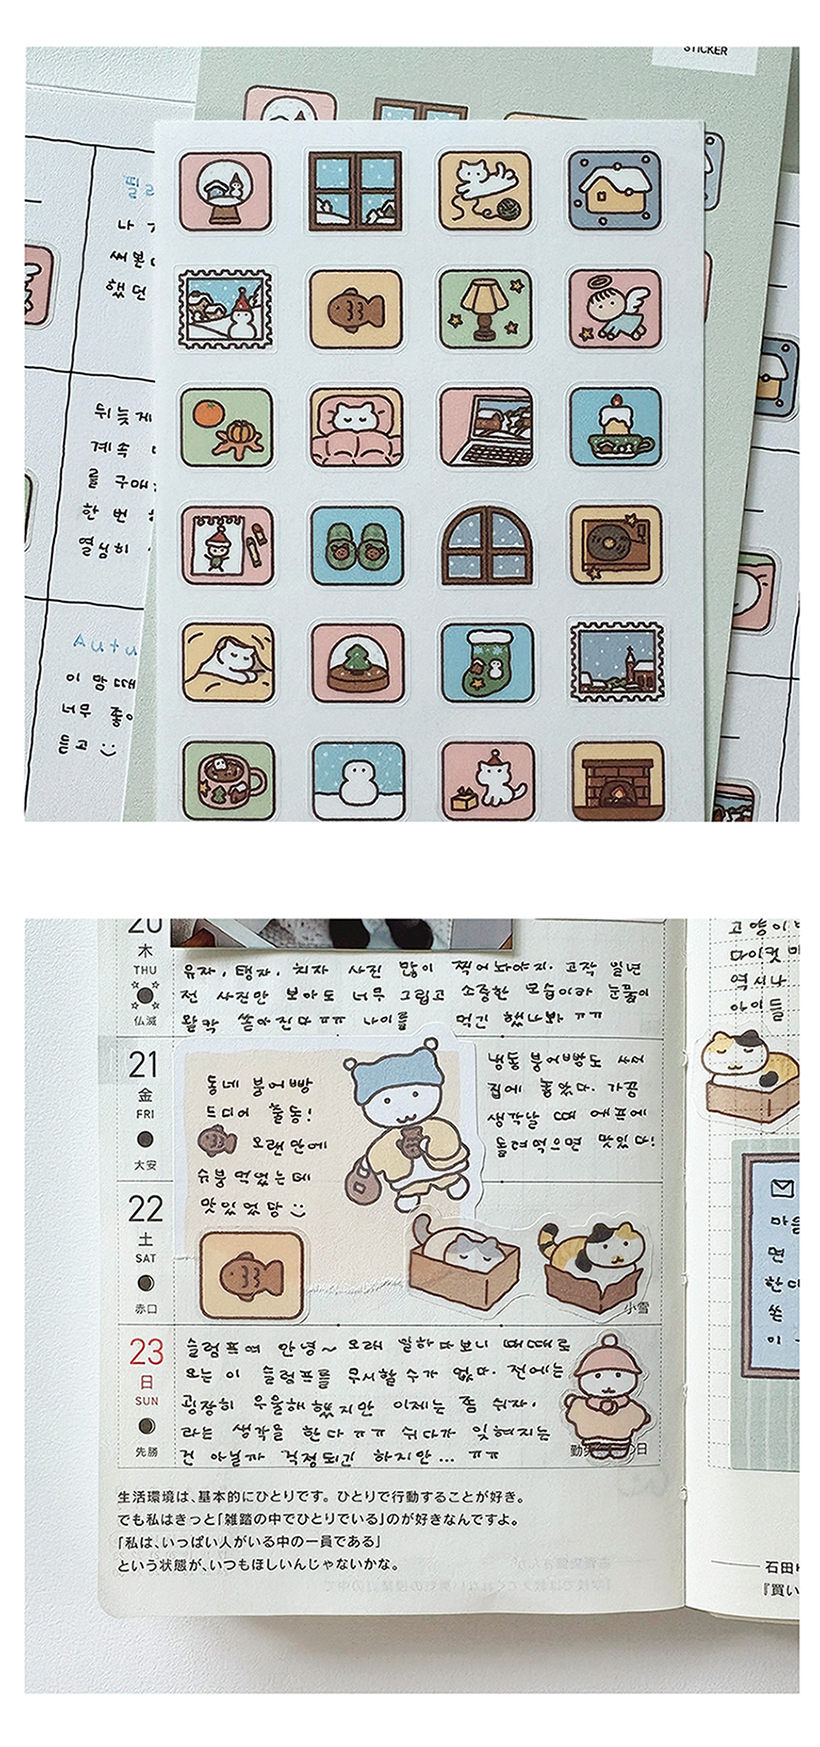 STICKER
나
써본
했던
뒤늦게
계속
를 구매
한 번
열심히
Autu
이 맘때
너무 좋아
듣고 :)
20
木
THU
仏滅
유자, 탱자, 치자 사진 많이 찍어놔야지. 고작 일년
전 사진만 보아도 너무 그립고 소중한 모습이라 눈물이
왈칵 쏟아진다 ㅠㅠ 나이를 먹긴 했나봐 ㅠㅠ
21
金
FRI
大安
동네 붕어빵
드디어 출동!
오랜만에
슈붕 먹었는데
맛있었당 :)
냉동 붕어빵도
집에 가끔
생각날 때 에프에
돌려먹으면 맛있다!
22
土
SAT
赤口
小雪
23
日
SUN
先勝
슬럼프여 안녕~ 오래 일하다보니 때때로
오는 이 슬럼프를 무시할 수가 없다. 전에는
굉장히 우울해했지만 이제는 좀 쉬자.
라는 생각을 한다 ㅠㅠ 쉬다가 잊혀지는
건 아닐까 걱정되긴 하지만... ㅠㅠ
勤労 の日
生活環境は、基本的にひとりです。ひとりで行動することが好き。
でも私はきっと「雑踏の中でひとりでいる」のが好きなんですよ。
「私は、いっぱい人がいる中の一員である」
という状態が、いつもほしいんじゃないかな。
고양이
다이컷
역시나
아이들
마을
면
한다
쓴
이
石田
『買い